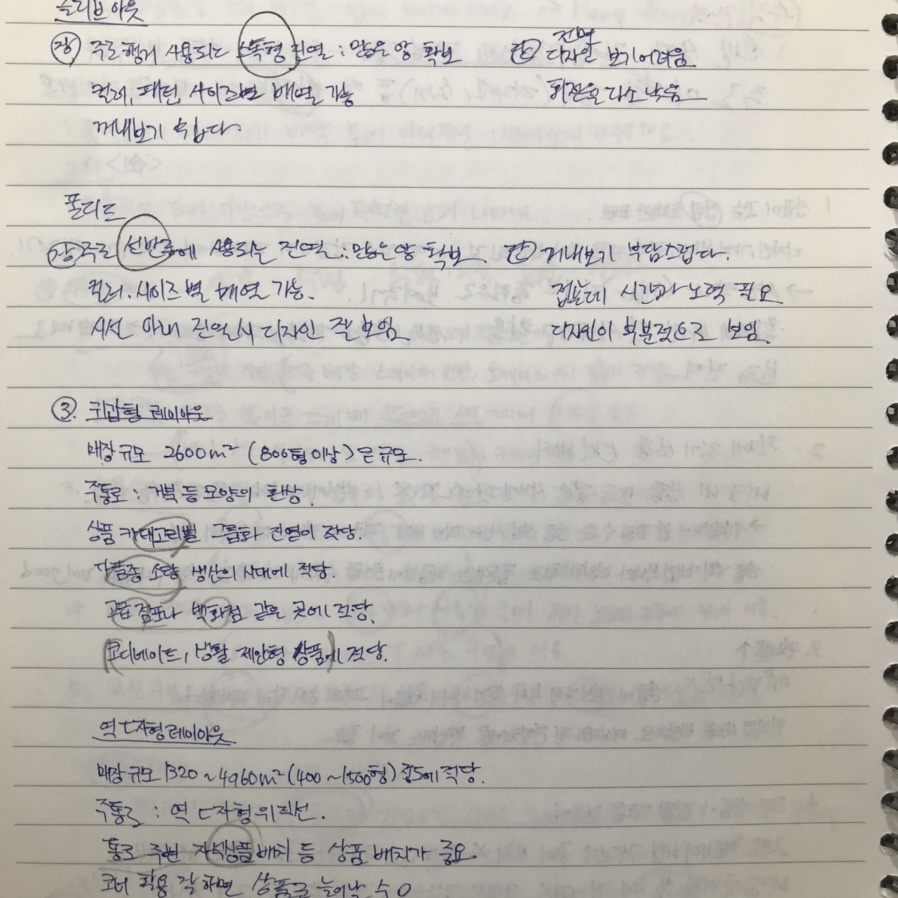 슬리브 아웃
장) 주로 행거 사용되는 소폭형 진열 : 많은 양 확보 단) 전면 디자인 보기 어려움
컬러, 패턴 사이즈별 배열 가능 회전율 다소 낮음
꺼내보기 쉽다.
폴디드
장) 주로 선반류에 사용되는 진열 : 많은 양 확보 단) 꺼내보기 부담스럽다.
컬러. 사이즈 별 배열 가능. 접는데 시간과 노력 필요
시선 아래 진열 시 디자인 잘 보임. 디자인이 부분적으로 보임.
③. 귀갑형 레이아웃
매장 규모 2600m² (800형 이상) 큰 규모.
주통로 : 거북 등 모양의 환상.
상품 카테고리별 그룹화 진열이 적당.
다품종 소량 생산의 시대에 적당.
고급점포나 백화점 같은 곳에 적당.
(코디네이트, 생활 제안형 상품)에 적당.
역 ㄷ자형 레이아웃
매장 규모 1320 ~ 4960m² (400 ~ 1500형) 정도에 적당.
주통로 : 역 ㄷ자형 위 직선.
통로 주변 자석상품 배치 등 상품 배치가 중요
코너 활용 잘하면 상품로 늘어날 수 O